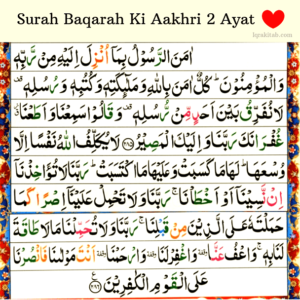 Surah Baqarah Ki Aakhri 2 Ayat
iqrakitab.com
اٰمَنَ الرَّسُوْلُ بِمَاۤ اُنْزِلَ اِلَیْهِ مِنْ رَّبِّهٖ
وَ الْمُؤْمِنُوْنَ ؕ كُلٌّ اٰمَنَ بِاللّٰهِ وَ مَلٰٓىِٕكَتِهٖ وَ كُتُبِهٖ وَ رُسُلِهٖ ۫
لَا نُفَرِّقُ بَیْنَ اَحَدٍ مِّنْ رُّسُلِهٖ ۫ وَ قَالُوْا سَمِعْنَا وَ اَطَعْنَا ٘
غُفْرَانَكَ رَبَّنَا وَ اِلَیْكَ الْمَصِیْرُ ﴿۲۸۵﴾ لَا یُكَلِّفُ اللّٰهُ نَفْسًا اِلَّا
وُسْعَهَا ؕ لَهَا مَا كَسَبَتْ وَ عَلَیْهَا مَا اكْتَسَبَتْ ؕ رَبَّنَا لَا تُؤَاخِذْنَاۤ
اِنْ نَّسِیْنَاۤ اَوْ اَخْطَاْنَا ۚ رَبَّنَا وَ لَا تَحْمِلْ عَلَیْنَاۤ اِصْرًا كَمَا
حَمَلْتَهٗ عَلَی الَّذِیْنَ مِنْ قَبْلِنَا ۚ رَبَّنَا وَ لَا تُحَمِّلْنَا مَا لَا طَاقَةَ
لَنَا بِهٖ ۚ وَ اعْفُ عَنَّا ٝ وَ اغْفِرْ لَنَا ٝ وَ ارْحَمْنَا ٝ اَنْتَ مَوْلٰىنَا فَانْصُرْنَا
عَلَی الْقَوْمِ الْكٰفِرِیْنَ ﴿۲۸۶﴾